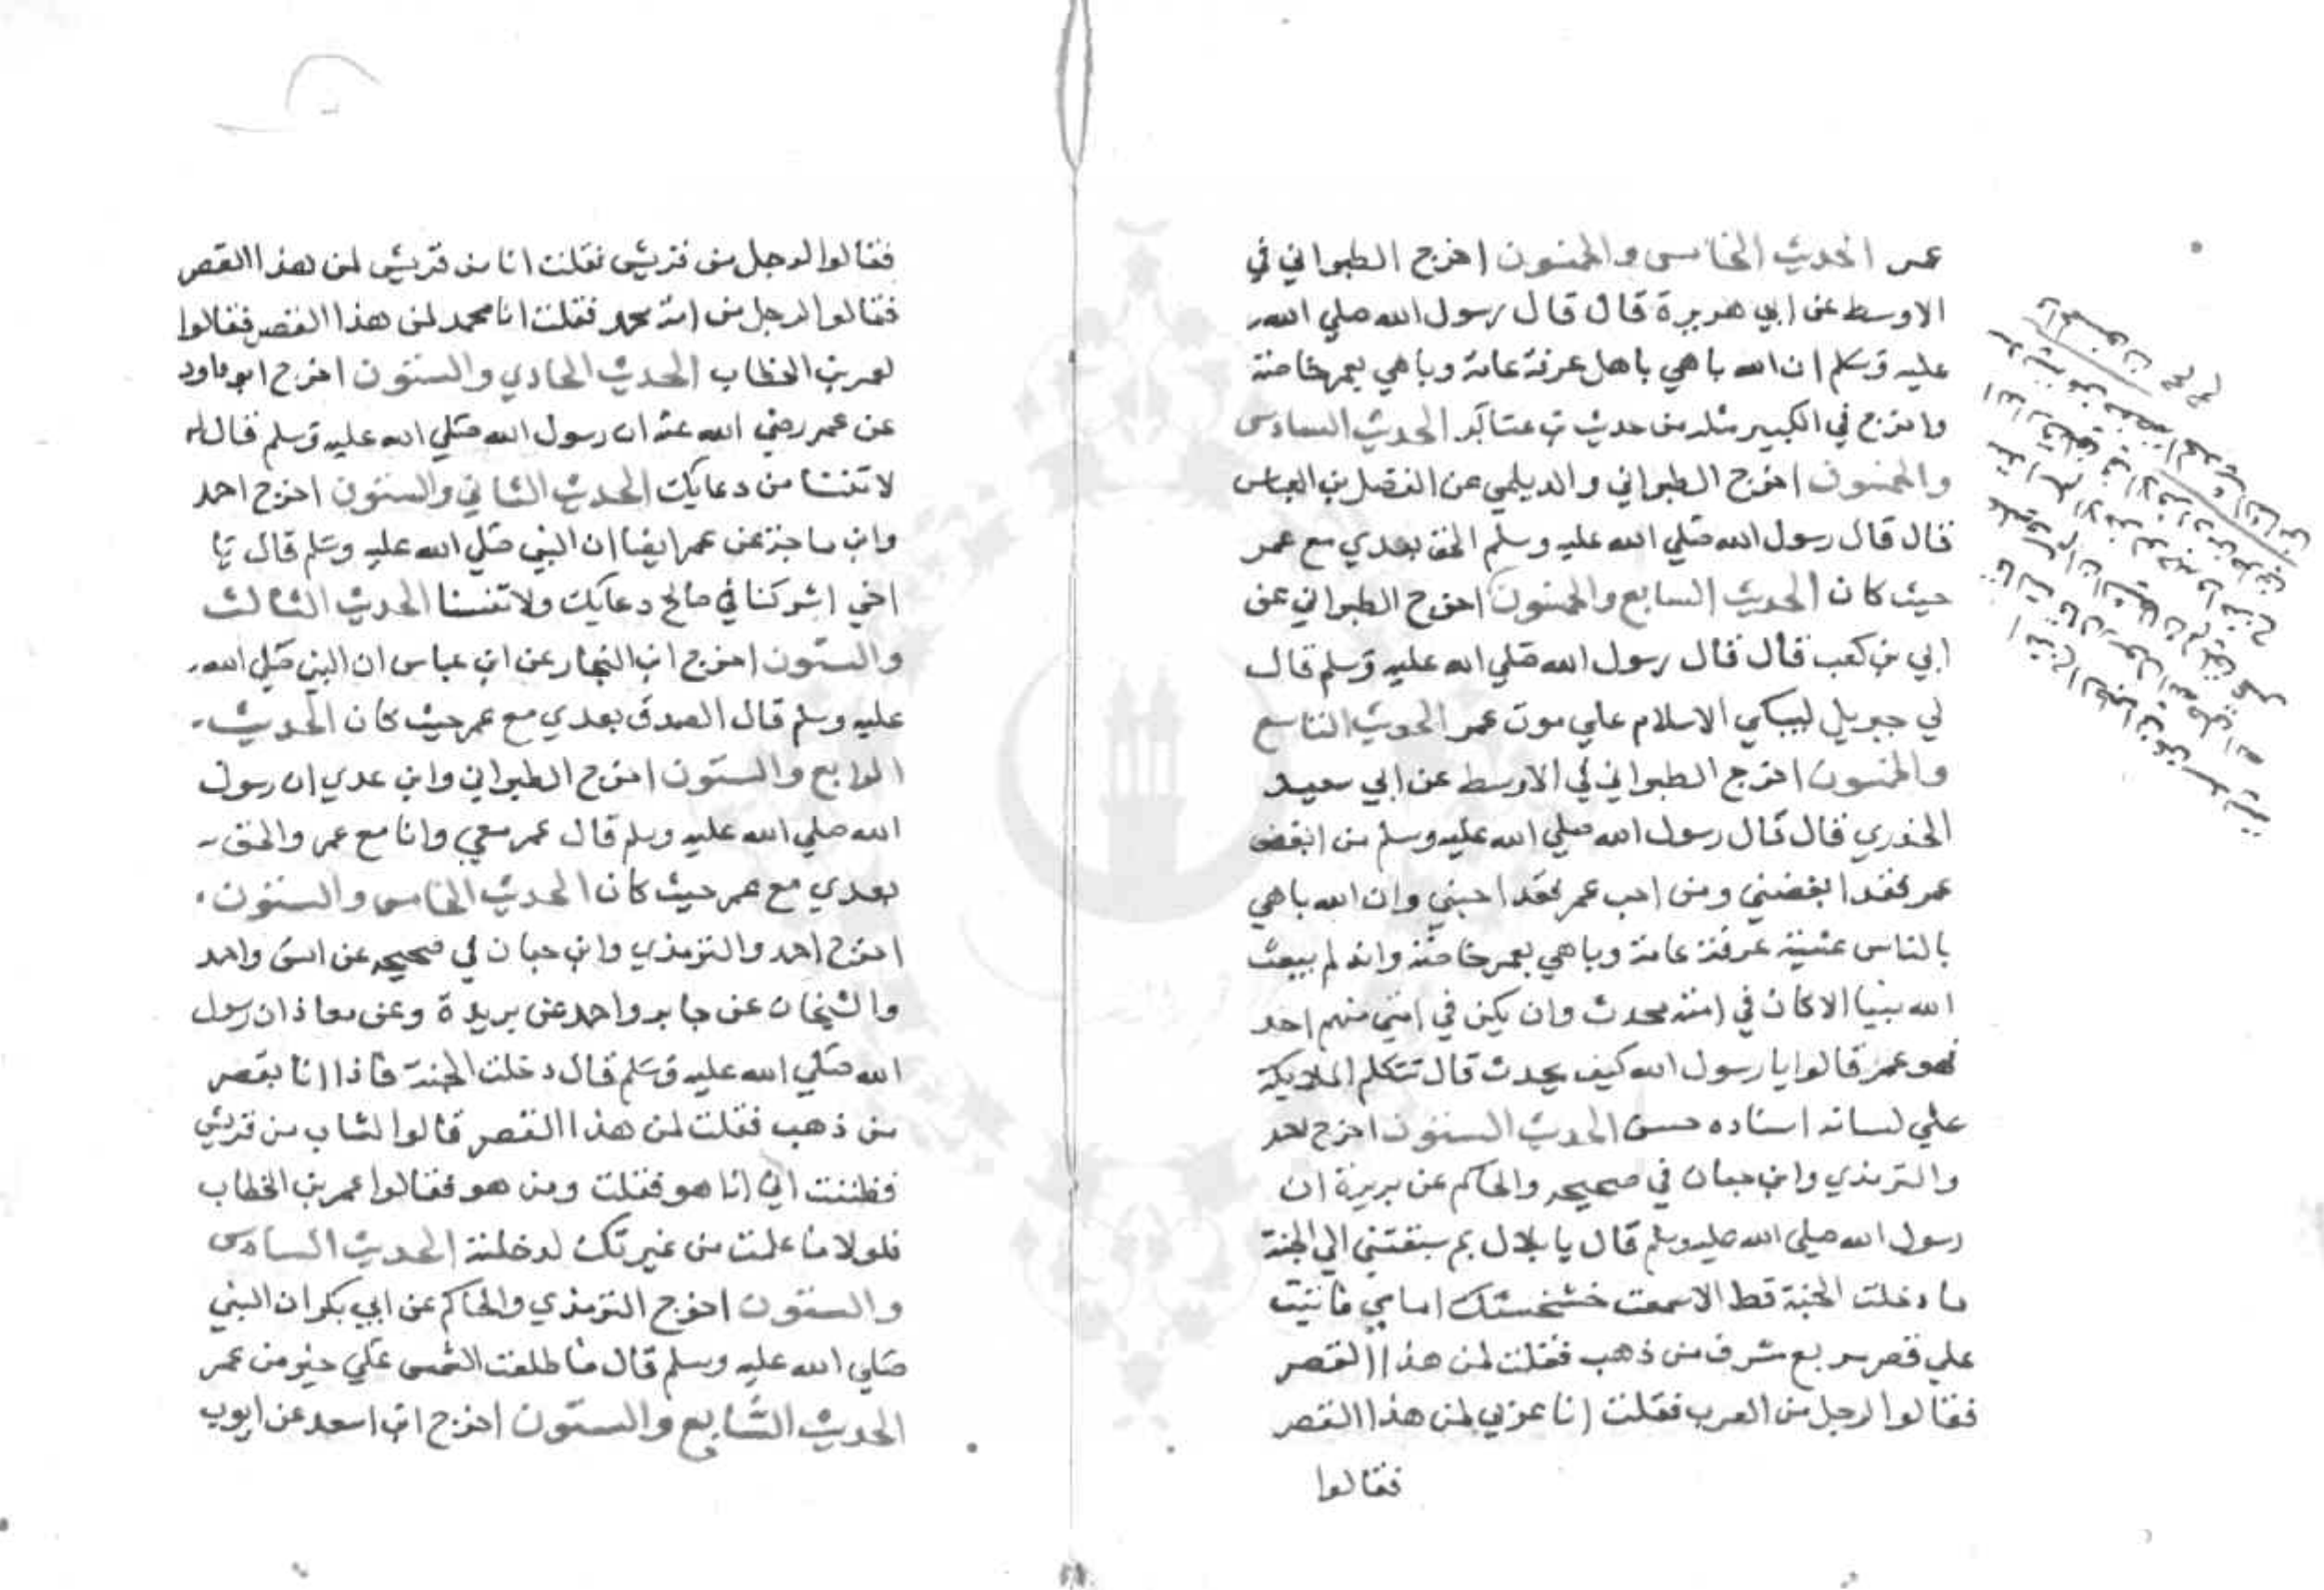 عمر الحديث الخامس والخمسون اخرج الطبراني في
الاوسط عن ابي هريرة قال قال رسول الله صلي الله
عليه وسلم ان الله باهي باهل عرفة عامة وباهي بعمر خاصة
واخرج في الكبير مثله من حديث بن عباس الحديث السادس
والخمسون اخرج الطبراني والديلمي عن الفضل بن العباس
قال قال رسول الله صلي الله عليه وسلم الحق بعدي مع عمر
حيث كان الحديث السابع والخمسون اخرج الطبراني عن
ابي بن كعب قال قال رسول الله صلي الله عليه وسلم قال
لي جبريل ليبكي الاسلام علي موت عمر الحديث التاسع
والخمسون اخرج الطبراني في الاوسط عن ابي سعيد
الخدري قال قال رسول الله صلي الله عليه وسلم من ابغض
عمر فقد ابغضني ومن احب عمر فقد احبني وان الله باهي
بالناس عشية عرفة عامة وباهي بعمر خاصة وانه لم يبعث
الله نبيا الا كان في امته محدث وان يكن في امتي منهم احد
فهو عمر قالوا يا رسول الله كيف يحدث قال تتكلم الملايكة
علي لسانه اسناده حسن الحديث الستون اخرج احمد
والترمذي وابن حبان في صحيحه والحاكم عن بريرة ان
رسول الله صلي الله عليه وسلم قال يا بلال بم سبقتني الي الجنة
ما دخلت الجنة قط الا سمعت خشخشتك امامي فاتيت
علي قصر مربع مشرف من ذهب فقلت لمن هذا القصر
فقالوا لرجل من العرب فقلت انا عربي لمن هذا القصر
فقالوا
فقالوا لرجل من قريش فقلت انا من قريش لمن هذا القصر
فقالوا لرجل من امة محمد فقلت انا محمد لمن هذا القصر فقالوا
لعمر بن الخطاب الحديث الحادي والستون اخرج ابو داود
عن عمر رضي الله عنه ان رسول الله صلي الله عليه وسلم قال له
لا تنسنا من دعايك الحديث الثاني والستون اخرج احمد
وابن ماجة عن عمر ايضا ان النبي صلي الله عليه وسلم قال يا
اخي اشركنا في صالح دعايك ولا تنسنا الحديث الثالث
والستون اخرج ابن النجار عن ابن عباس ان النبي صلي الله
عليه وسلم قال الصدق بعدي مع عمر حيث كان الحديث
الرابع والستون اخرج الطبراني وابن عدي ان رسول
الله صلي الله عليه وسلم قال عمر معي وانا مع عمر والحق
بعدي مع عمر حيث كان الحديث الخامس والستون
اخرج احمد والترمذي وابن حبان في صحيحه عن انس واحمد
والشيخان عن جابر واحمد عن بريدة وعن معاذ ان رسول
الله صلي الله عليه وسلم قال دخلت الجنة فاذا انا بقصر
من ذهب فقلت لمن هذا القصر قالوا لشاب من قريش
فظننت اني انا هو فقلت ومن هو فقالوا عمر بن الخطاب
فلولا ما علمت من غيرتك لدخلته الحديث السادس
والستون اخرج الترمذي والحاكم عن ابي بكر ان النبي
صلي الله عليه وسلم قال ما طلعت الشمس علي خير من عمر
الحديث السابع والستون اخرج ابن اسعد عن ايوب